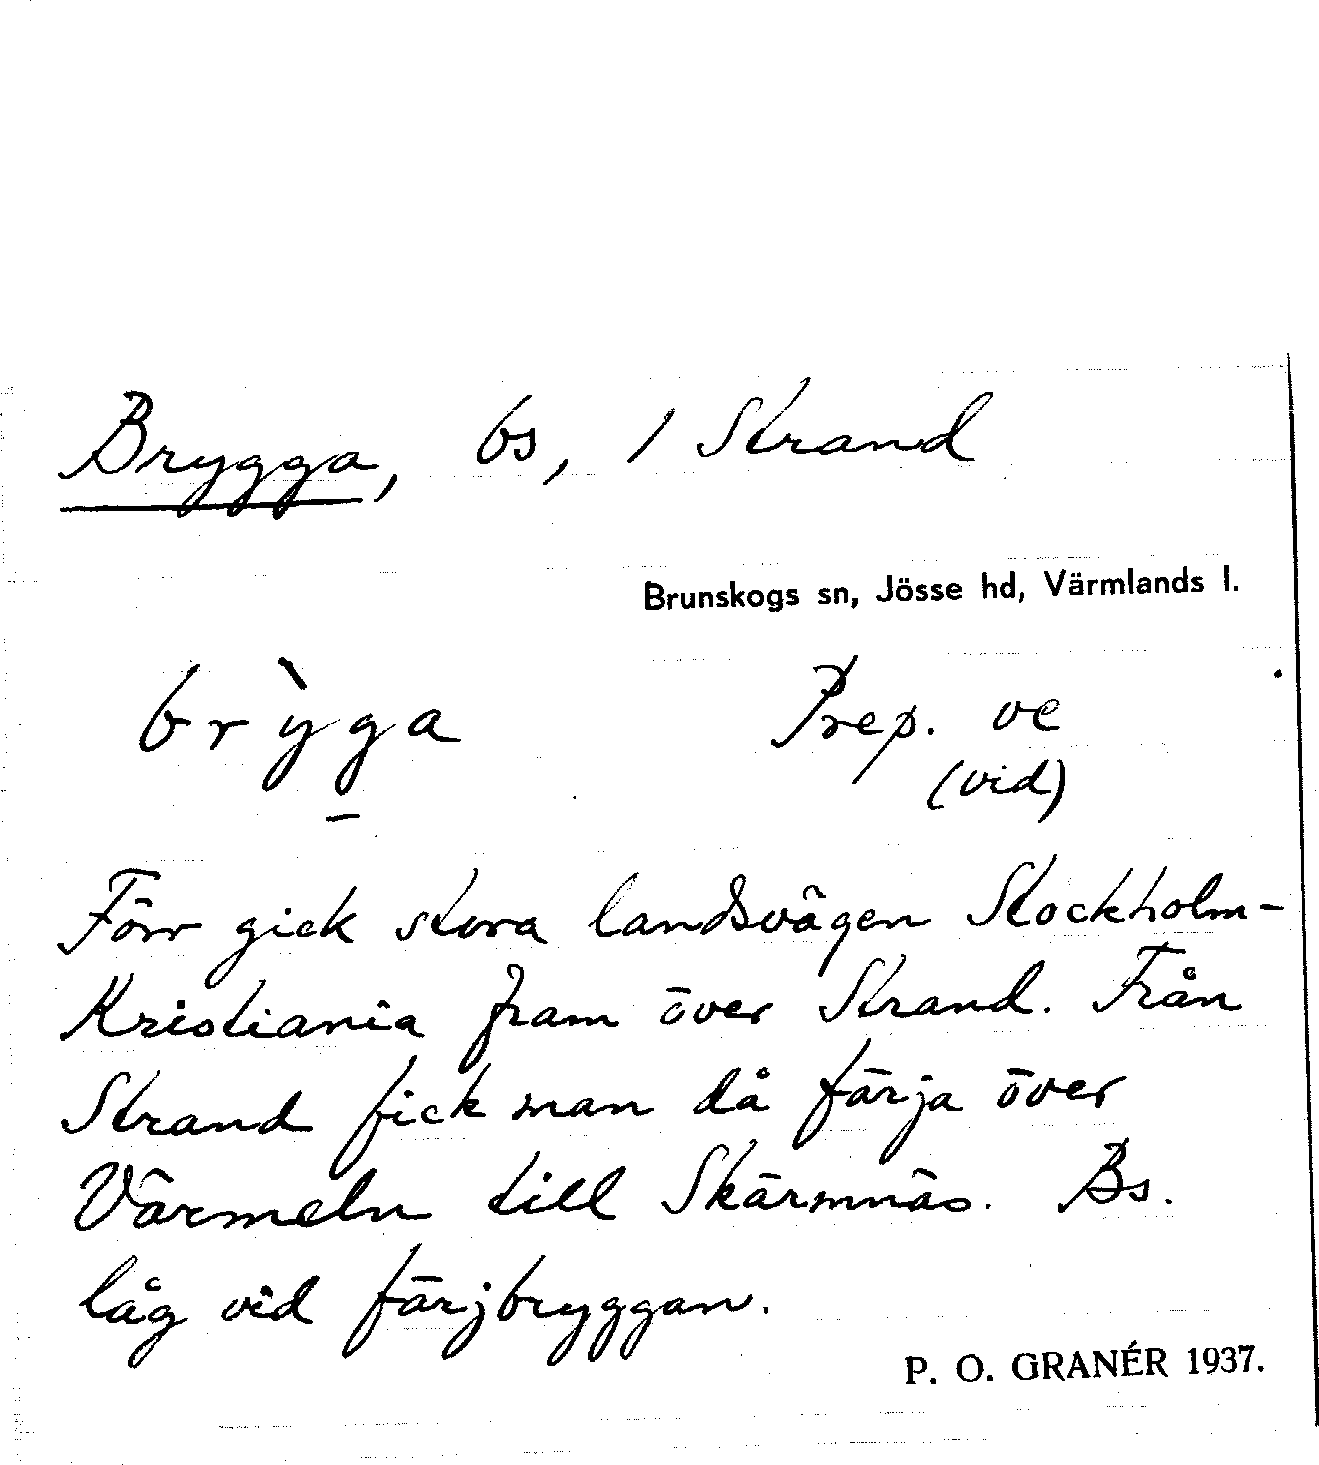 Brygga, bs, / Strand
Brunskogs sn, Jösse hd, Värmlands l.
brỳga Prep. ve
(vid)
Förr gick stora landsvägen Stockholm-
Kristiania fram över Strand. Från
Strand fick man då färja över
Värmeln till Skärmnäs. Bs.
låg vid färjbryggan.
P. O. GRANÉR 1937.